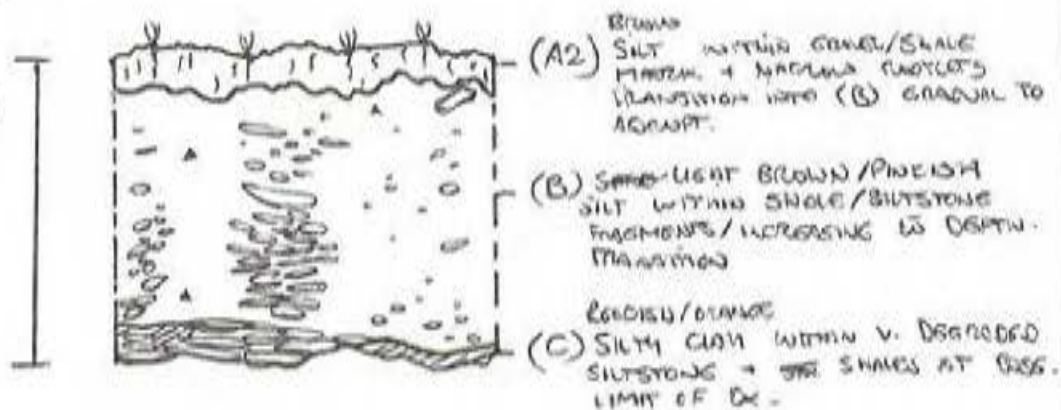 BROWN
(A2) SILT WITHIN GRAVEL/SHALE
MATRIX + NARROW ROOTLETS
TRANSITION INTO (B) GRADUAL TO
ABRUPT.
(B) LIGHT BROWN/PINKISH
SILT WITHIN SHALE/SILTSTONE
FRAGMENTS/INCREASING W DEPTH.
TRANSITION
REDDISH/ORANGE
(C) SILTY CLAY WITHIN V. DEGRADED
SILTSTONE + SHALES AT BASE.
LIMIT OF